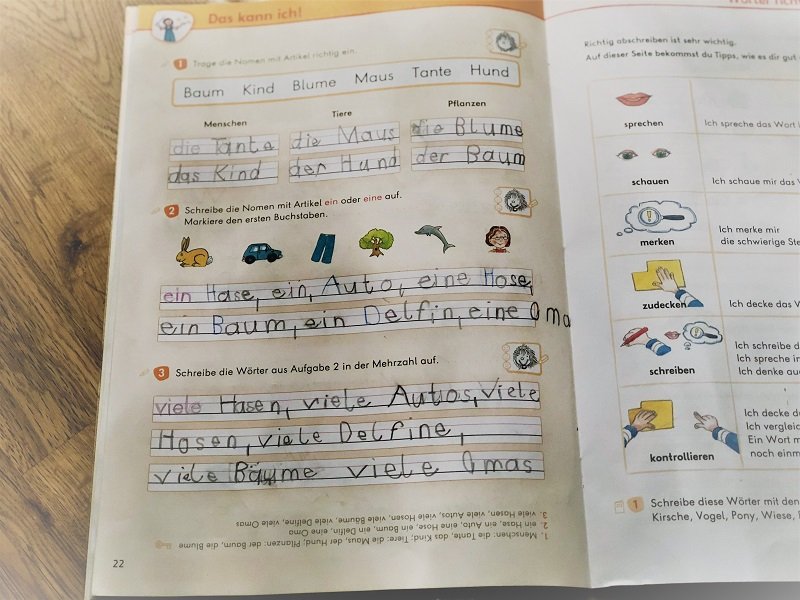 Das kann ich!
1 Trage die Nomen mit Artikel richtig ein.
Baum Kind Blume Maus Tante Hund
Menschen Tiere Pflanzen
die Tante die Maus die Blume
das Kind der Hund der Baum
2 Schreibe die Nomen mit Artikel ein oder eine auf.
Markiere den ersten Buchstaben.
ein Hase, ein, Auto, eine Hose,
ein Baum, ein Delfin, eine Oma
3 Schreibe die Wörter aus Aufgabe 2 in der Mehrzahl auf.
viele Hasen, viele Autos, viele
Hosen, viele Delfine,
viele Bäume viele Omas
1. Menschen: die Tante, das Kind; Tiere: die Maus, der Hund; Pflanzen: der Baum, die Blume
2. ein Hase, ein Auto, eine Hose, ein Baum, ein Delfin, eine Oma
3. viele Hasen, viele Autos, viele Hosen, viele Bäume, viele Delfine, viele Omas
22
Richtig abschreiben ist sehr wichtig.
Auf dieser Seite bekommst du Tipps, wie es dir gut
sprechen
Ich spreche das Wort
schauen
Ich schaue mir das
merken
Ich merke mir
die schwierige
zudecken
Ich decke das
schreiben
Ich schreibe
Ich spreche
Ich denke
kontrollieren
Ich decke
Ich
Ein Wort
noch
1 Schreibe diese Wörter mit den
Kirsche, Vogel, Pony, Wiese,